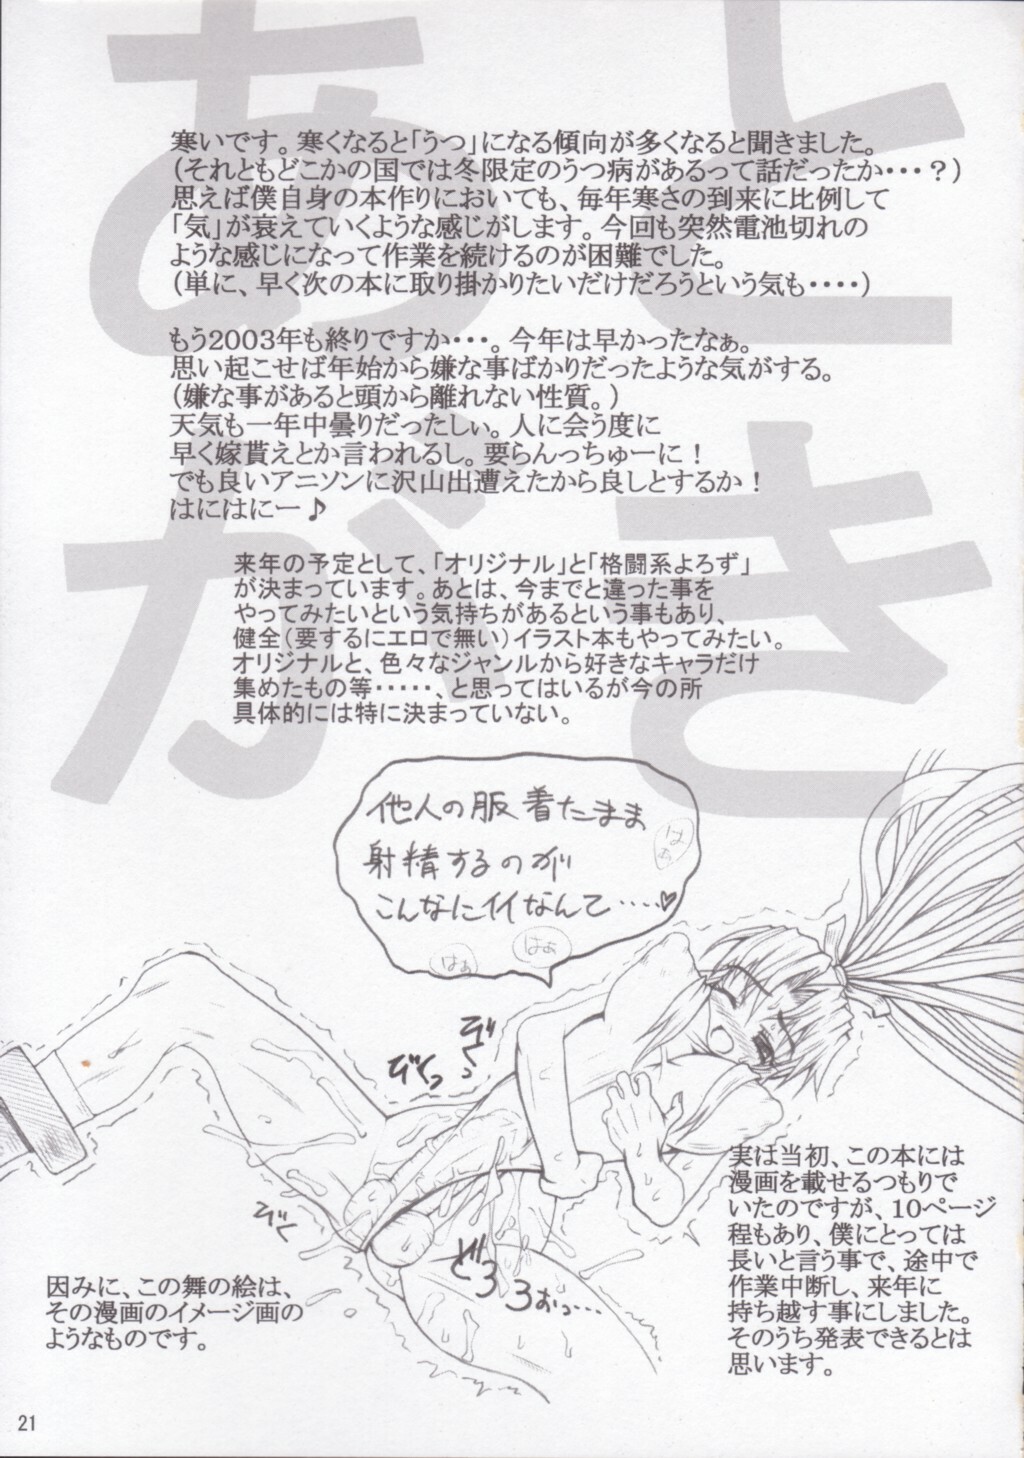 あとがき
寒いです。寒くなると「うつ」になる傾向が多くなると聞きました。
(それともどこかの国では冬限定のうつ病があるって話だったか・・・?)
思えば僕自身の本作りにおいても、毎年寒さの到来に比例して
「気」が衰えていくような感じがします。今回も突然電池切れの
ような感じになって作業を続けるのが困難でした。
(単に、早く次の本に取り掛かりたいだけだろうという気も・・・・)
もう2003年も終りですか・・・。今年は早かったなぁ。
思い起こせば年始から嫌な事ばかりだったような気がする。
(嫌な事があると頭から離れない性質。)
天気も一年中曇りだったしぃ。人に会う度に
早く嫁貰えとか言われるし。要らんっちゅーに!
でも良いアニソンに沢山出遭えたから良しとするか!
はにはにー♪
来年の予定として、「オリジナル」と「格闘系よろず」
が決まっています。あとは、今までと違った事を
やってみたいという気持ちがあるという事もあり、
健全(要するにエロで無い)イラスト本もやってみたい。
オリジナルと、色々なジャンルから好きなキャラだけ
集めたもの等・・・・・、と思ってはいるが今の所
具体的には特に決まっていない。
他人の服着たまま
射精するのが
こんなにイイなんて……♡
はぁ
はぁ
はぁ
びくっ
びくっ
びく
どろろろぉっ…
実は当初、この本には
漫画を載せるつもりで
いたのですが、10ページ
程もあり、僕にとっては
長いと言う事で、途中で
作業中断し、来年に
持ち越す事にしました。
そのうち発表できるとは
思います。
因みに、この舞の絵は、
その漫画のイメージ画の
ようなものです。
21